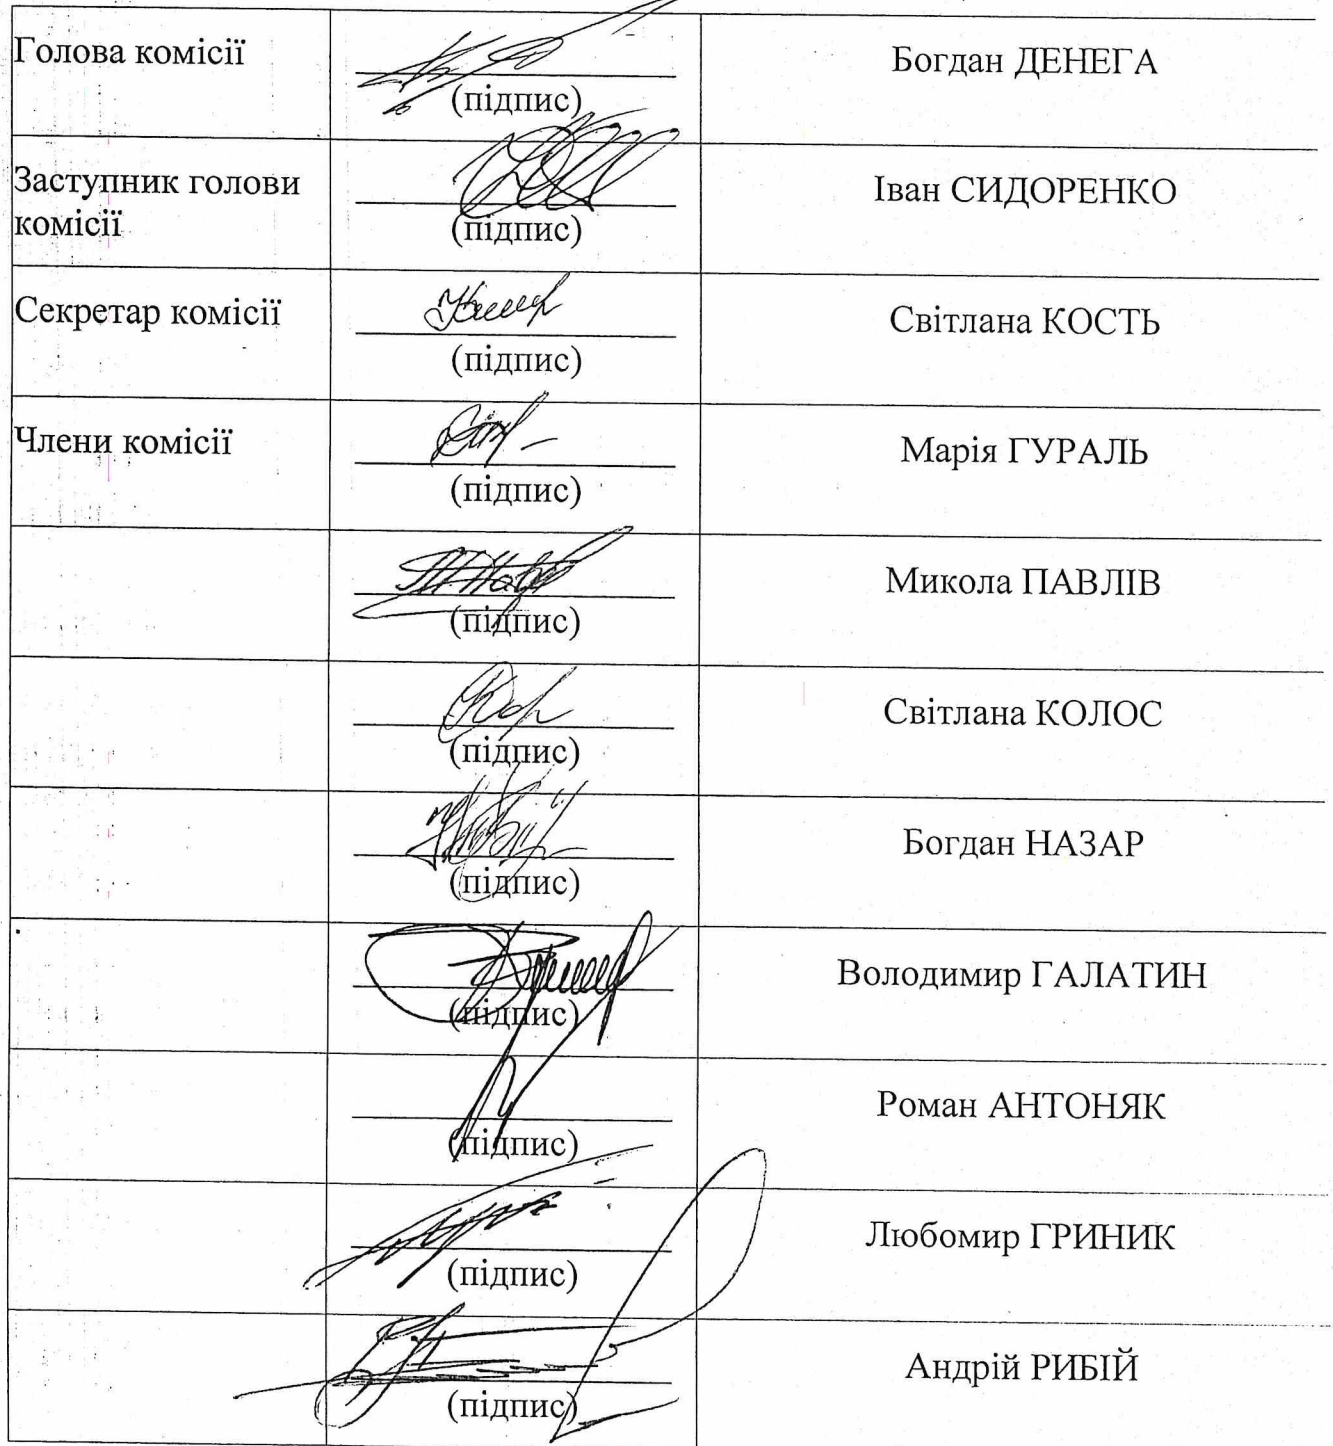 Голова комісії
(підпис)
Богдан ДЕНЕГА
Заступник голови
комісії
(підпис)
Іван СИДОРЕНКО
Секретар комісії
(підпис)
Світлана КОСТЬ
Члени комісії
(підпис)
Марія ГУРАЛЬ
(підпис)
Микола ПАВЛІВ
(підпис)
Світлана КОЛОС
(підпис)
Богдан НАЗАР
(підпис)
Володимир ГАЛАТИН
(підпис)
Роман АНТОНЯК
(підпис)
Любомир ГРИНИК
(підпис)
Андрій РИБІЙ